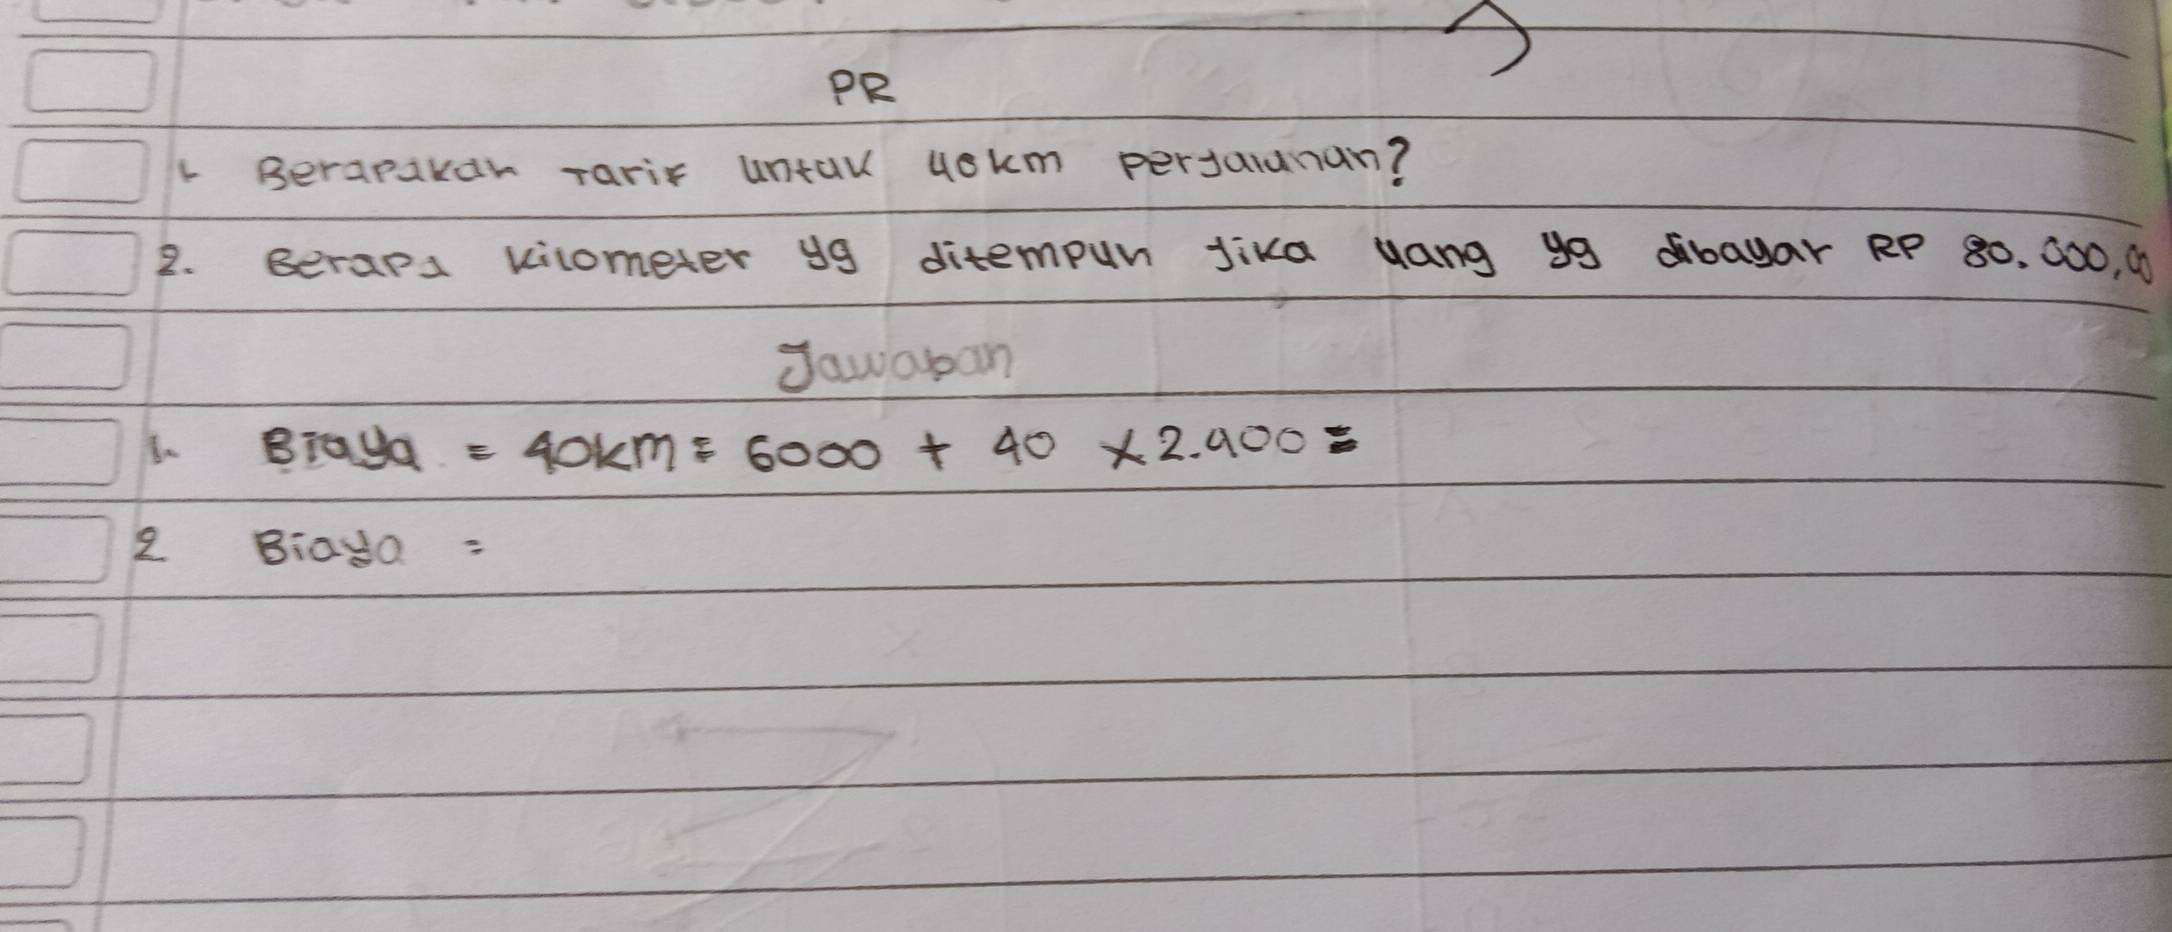 PR
1. Berapakah Tarif untuk 40km perjalanan?
2. Berapa kilometer yg ditempuh jika uang yg dibayar RP 80.000,00
Jawaban
1. Biaya = 40km = 6000 + 40 × 2.900 =
2 Biaya =